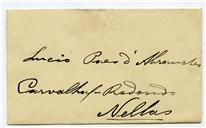 Lucio Paes d'Abranches
Carvalhal-Redondo
Nellas